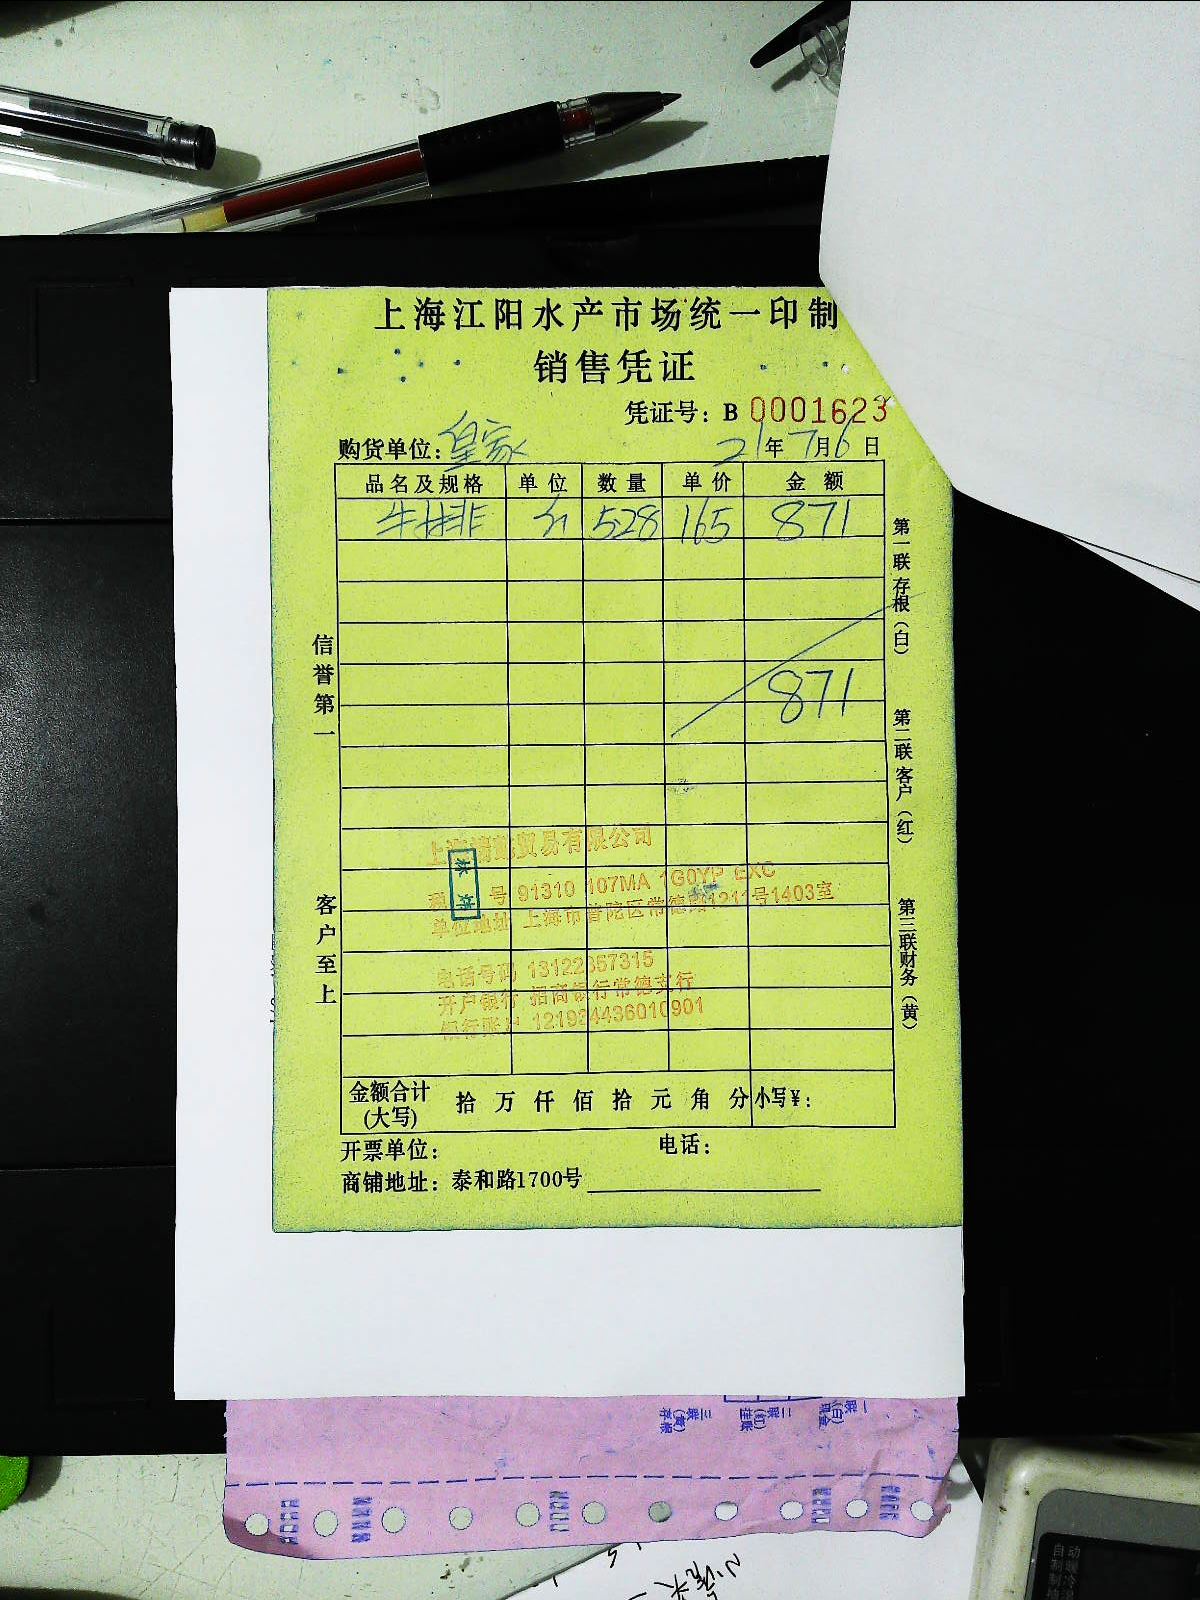 上海江阳水产市场统一印制
销售凭证
凭证号：B 0001623
购货单位：皇家 21年7月6日
品名及规格 单位 数量 单价 金额
牛林排 528 165 871
871
信誉第一
客户至上
第一联存根（白）
第二联客户（红）
第三联财务（黄）
贸易有限公司
号 91310 107MA 1G0YP EXC
单位地址 上海市普陀区常德路1211号1403室
电话号码 13122357315
开户银行 招商银行常德支行
银行账户 121924436010901
金额合计（大写） 拾 万 仟 佰 拾 元 角 分 小写¥：
开票单位： 电话：
商铺地址：泰和路1700号